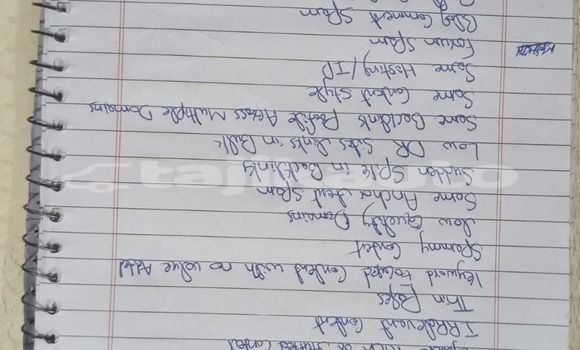 Irrelevant Content
Thin Pages
Keyword Focused Content with no value Added
Spammy Content
Low Quality Domains
Same Anchor text Spam
Sudden Spike in Backlinks
Low DR Sites Links in Bulk
Same Backlinks Profile Across Multiple Domains
Same Content Style
Same Hosting/IP
Forum Spam
Blog Comment Spam